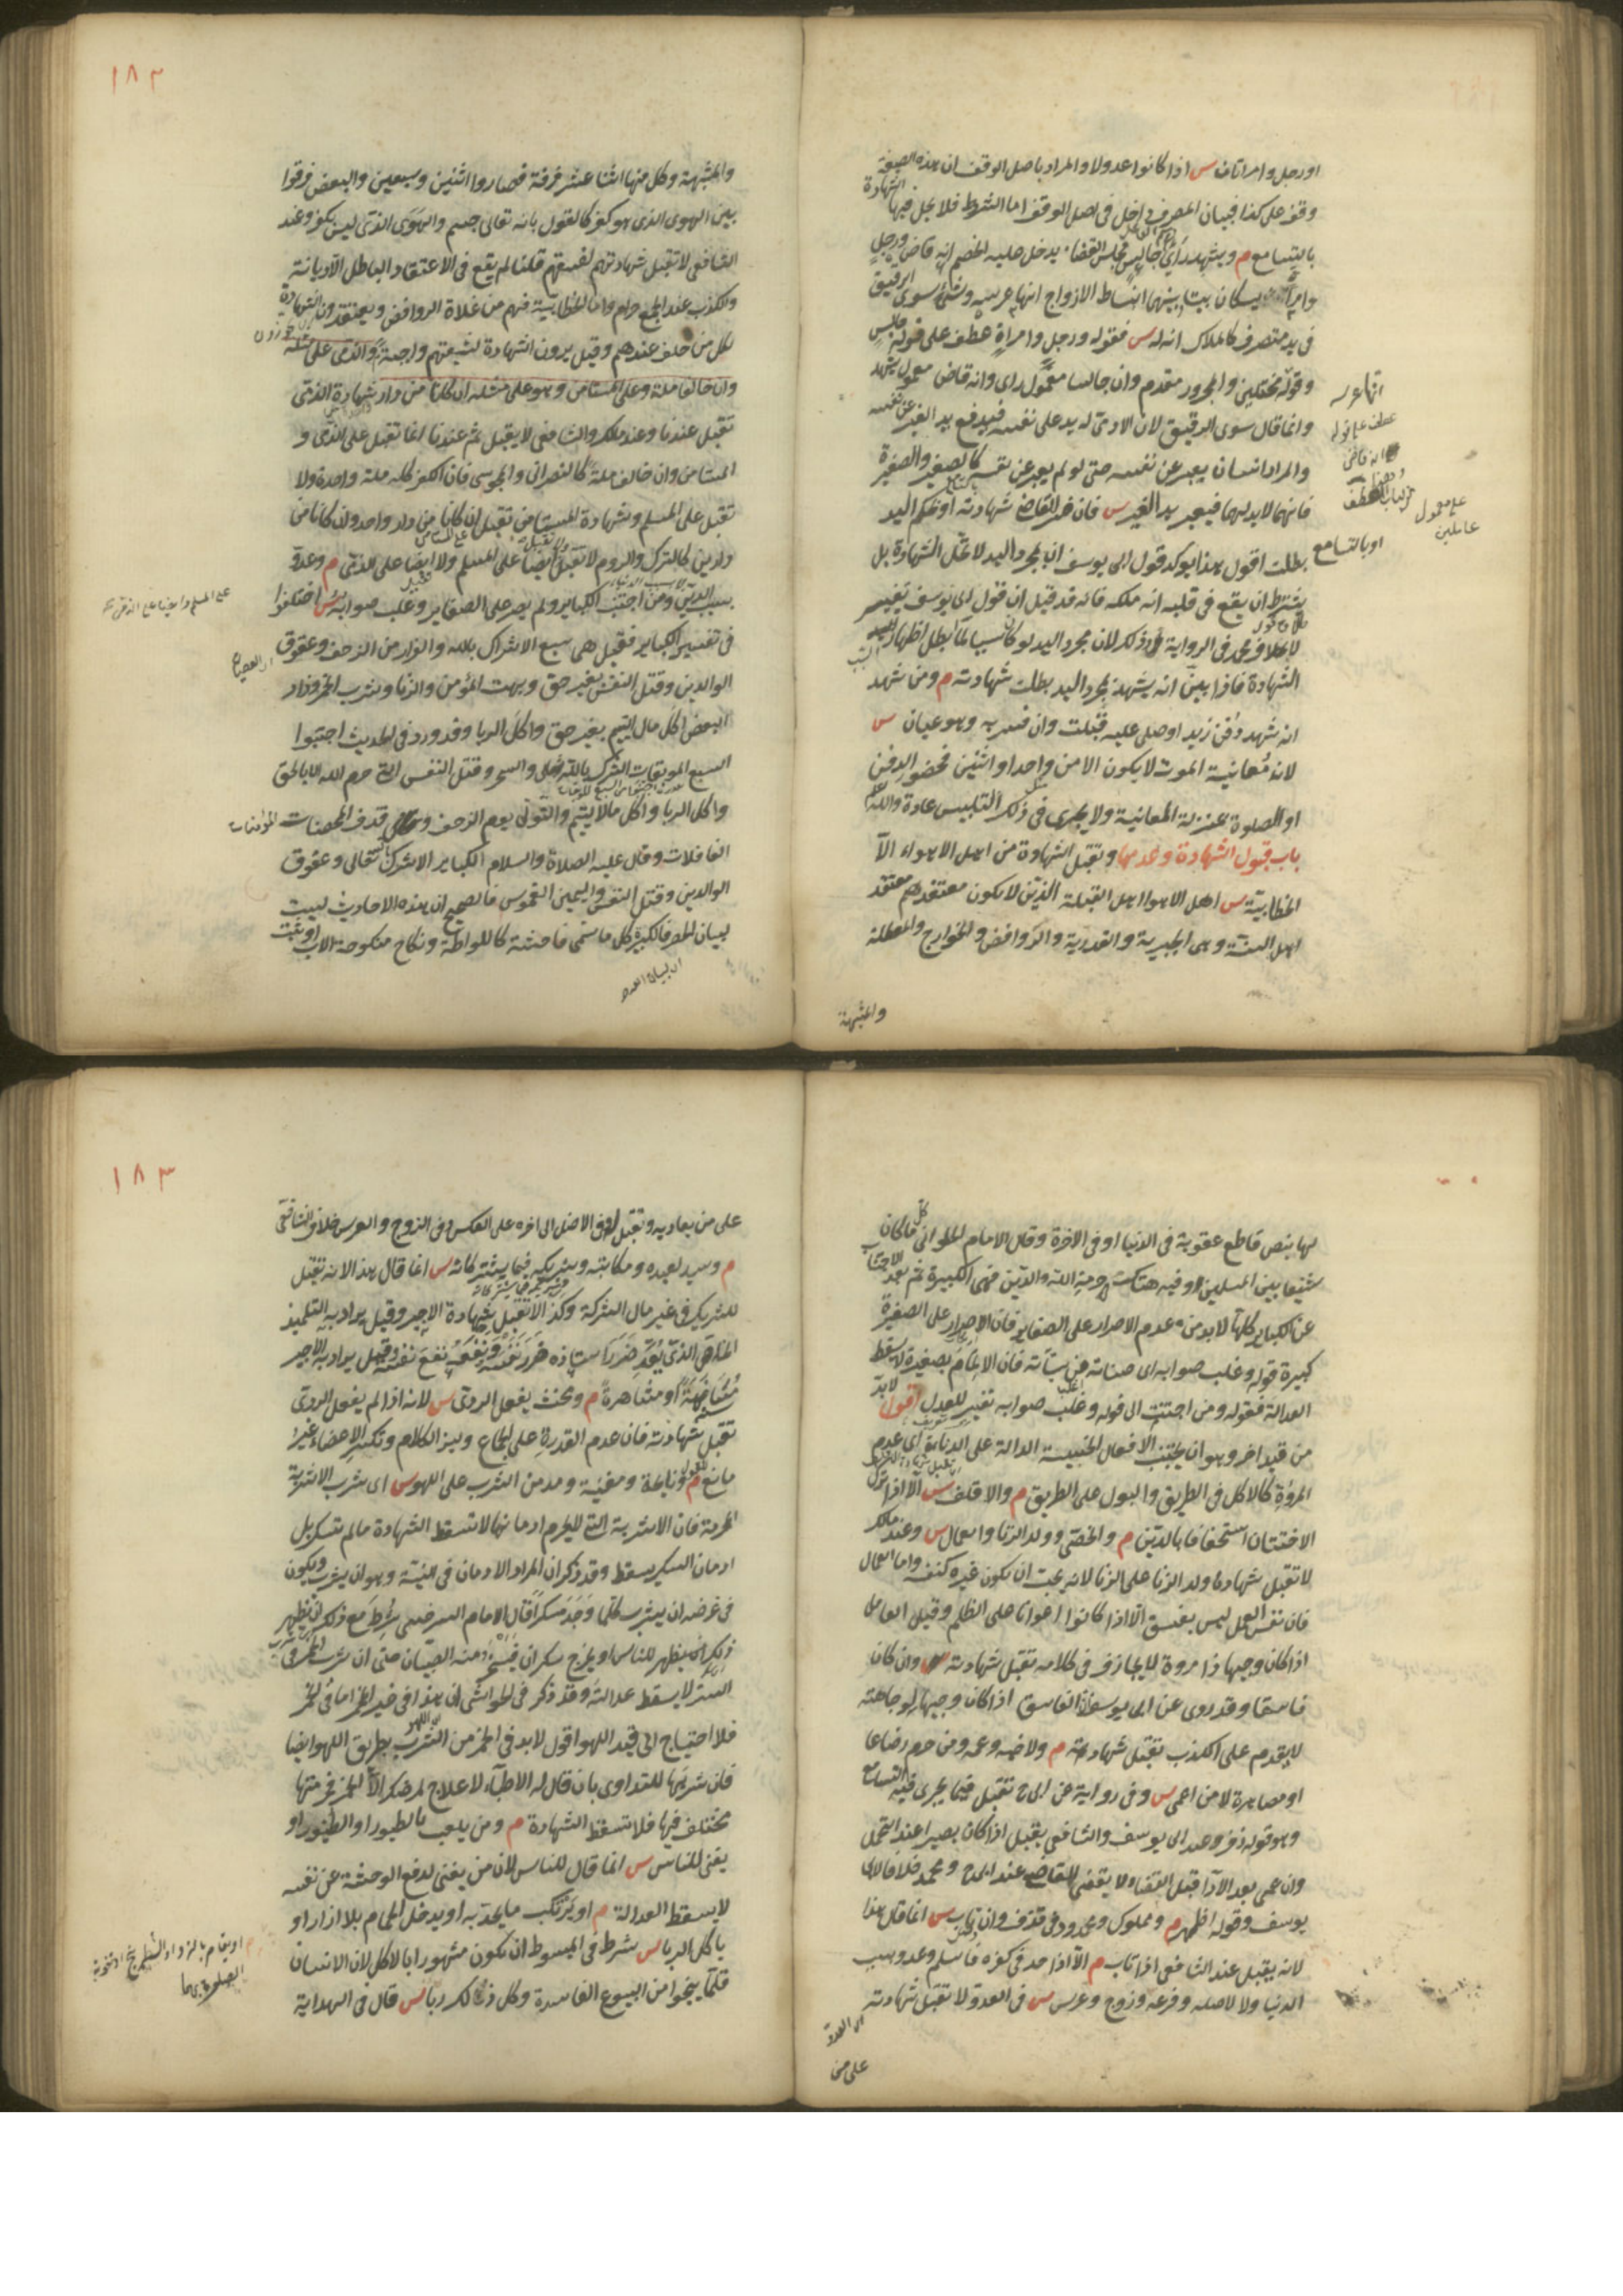 او رجل وامراتان س اذا كانوا عدولا والمراد باصل الوقف ان هذه الصيغة
وقف على كذا فبيان المصرف داخل فى اصل الوقف اما الشروط فلا يحل فيها الشهادة
بالتسامع م ويشهد راى جالس مجلس القضاء يدخل عليه الخصم انه قاض ورجل
وامراة يسكنان بيتا بينهما انبساط الازواج انها عرسه وشئ سوى الرقيق
فى يد متصرف كالملاك انه له س فقوله ورجل وامراة عطف على قوله جالس
وقوله مختلفين والمجرور مقدم وان جالسا معمول راى وانه قاض معمول يشهد
وانما قال سوى الرقيق لان الادمى له يد على نفسه فيدفع يد الغير عن نفسه
والمراد انسان يعبر عن نفسه حتى لو لم يعبر عن نفسه كالصغير والصغيرة
فانهما لا يد لهما فيعتبر يد الغير س فان فسر القاضى شهادته او بحكم اليد
بطلت اقول هذا يوكد قول ابى يوسف ان بمجرد اليد لا تحل الشهادة بل
يشترط ان يقع فى قلبه انه ملكه فانه قد قيل ان قول ابى يوسف تفسير
لاطلاق محمد فى الرواية وذلك لان مجرد اليد لو كان سببا لما ابطل اظهار السبب
الشهادة فاذا بين انه يشهد بمجرد اليد بطلت شهادته م ومن شهد
انه شهد دفن زيد او صلى عليه قبلت وان فسر به وهو عيان س
لان معاينة الموت لا يكون الا من واحد او اثنين فحضور الدفن
او الصلوة بمنزلة المعاينة ولا يجرى فى ذلك التلبيس عادة والله اعلم
باب قبول الشهادة وعدمها وتقبل الشهادة من اهل الاهواء الا
الخطابية س اهل الاهوا اهل القبلة الذين لا يكون معتقدهم معتقد
اهل السنة وهى الجبرية والقدرية والروافض والخوارج والمعطلة
والمشبهة
انها عرسه
عطف على قوله
انه قاض
على معمول
عاملين
او بالتسامع
١٨٢
والمشبهة وكل منها اثنا عشر فرقة فصاروا اثنين وسبعين والبعض فرقوا
بين الهوى الذى هو كفر كالقول بانه تعالى جسم والهوى الذى ليس بكفر وعند
الشافعى لا تقبل شهادتهم لفسقهم قلنا لم يقع فى الاعتقاد الباطل الا ديانة
والكذب عند الجمع حرام واما الخطابية فهم من غلاة الروافض ويعتقدون الشهادة
لكل من حلف عندهم وقيل يرون الشهادة لشيعتهم واجبة والذمى على مثله
وان خالفا ملة وعلى المستامن وهو على مثله ان كانا من دار شهادة الذمى
تقبل عندنا وعند ملك والشافعى لا يقبل ثم عندنا انما تقبل على الذمى و
المستامن وان خالف ملة كالنصرانى والمجوسى فان الكفر كله ملة واحدة ولا
تقبل على المسلم وشهادة المستامن تقبل ان كانا من دار واحد وان كانا من
دارين كالترك والروم لا تقبل ايضا على المسلم ولا ايضا على الذمى م وعدو
بسبب الدين ومن اجتنب الكباير ولم يصر على الصغاير وغلب صوابه س اختلفوا
فى تفسير الكباير فقيل هى سبع الاشراك بالله والفرار من الزحف وعقوق
الوالدين وقتل النفس بغير حق وبهت المؤمن والزنا وشرب الخمر وزاد
البعض اكل مال اليتيم بغير حق واكل الربا وقد ورد فى الحديث اجتنبوا
السبع الموبقات الشرك بالله والسحر وقتل النفس التى حرم الله الا بالحق
واكل الربا واكل مال اليتيم والتولى يوم الزحف وقذف المحصنات المؤمنات
الغافلات وقال عليه الصلاة والسلام الكباير الاشراك بالله تعالى وعقوق
الوالدين وقتل النفس واليمين الغموس فالصحيح ان هذه الاحاديث ليست
لبيان الحصر فالكبيرة كل ما سمى فاحشة كاللواطة ونكاح منكوحة الاب او ثبت
اى لبيان العدد
لها بنص قاطع عقوبة فى الدنيا او فى الاخرة وقال الامام الحلوانى كل ما كان
شنيعا بين المسلمين وفيه هتك حرمة الله والدين فهى الكبيرة ثم بعد الاجتناب
عن الكباير كلها لا بد من عدم الاصرار على الصغاير فان الاصرار على الصغيرة
كبيرة قوله وغلب صوابه اى حسناته على سيئاته فان الالمام بصغيرة لا يسقط
العدالة فقوله ومن اجتنب الى قوله وغلب صوابه تفسير للعدل اقول لا بد
من قيد اخر وهو ان يجتنب الافعال الخسيسة الدالة على الدناءة اى عدم
المروة كالاكل فى الطريق والبول على الطريق م والاقلف س الا اذا ترك
الاختتان استخفافا بالدين م والخصى وولد الزنا والعمال س وعند ملك
لا تقبل شهادة ولد الزنا على الزنا لانه يحب ان يكون غيره كنفسه واما العمال
فان نفس العمل ليس بفسق الا اذا كانوا اعوانا على الظلم وقيل العامل
اذا كان وجيها ذا مروة لا يجازف فى كلامه تقبل شهادته وان كان
فاسقا وقد روى عن ابى يوسف ان الفاسق اذا كان وجيها لوجاهته
لا يقدم على الكذب تقبل شهادته م ولاخيه وعمه ومن حرم رضاعا
او مصاهرة لا من اعمى س وفى رواية عن ابى ح تقبل فيما يجرى فيه التسامع
وهو قول زفر وعند ابى يوسف والشافعى يقبل اذا كان بصيرا عند التحمل
وان عمى بعد الادا قبل القضاء لا يقضى القاضى عند ابى ح ومحمد خلافا لابى
يوسف وقوله اظهر م ومملوك ومحدود فى قذف وان تاب س انما قال هذا
لانه يقبل عند الشافعى اذا تاب م الا اذا حد فى كفره فاسلم وعدو بسبب
الدنيا ولا لاصله وفرعه وزوج وعرس س فى العدو لا تقبل شهادته
على من
١٨٣
على من يعاديه وتقبل له وفى الاصل الى اخره على العكس وفى الزوج والعرس خلاف الشافعى
م وسيد لعبده ومكاتبه وشريكه فيما يشتركانه س انما قال هذا لانه تقبل
للشريك فى غير مال الشركة وكذا لا تقبل شهادة الاجير وقيل يراد به التلميذ
الخاص الذى يعد ضرر استاذه ضرر نفسه ونفعه نفع نفسه وقيل يراد به الاجير
مسانهة او مشاهرة م ومخنث يفعل الردى س لانه اذا لم يفعل الردى
تقبل شهادته فان عدم القدرة على الجماع ولين الكلام وتكسر الاعضاء غير
مانع م ونايحة ومغنية ومدمن الشرب على اللهو س اى شرب الاشربة
المحرمة فان الاشربة التى لا يحرم ادمانها لا تسقط الشهادة ما لم يسكر بل
ادمان السكر يسقط وقد ذكر ان المراد الادمان فى النية وهو ان يشرب ويكون
فى غرضه ان يشرب كلما وجد مسكرا قال الامام السرخسى شرط مع ذلك ان يظهر
ذلك للناس او يخرج سكران فيسخر منه الصبيان حتى ان شرب الخمر فى
السر لا يسقط عدالته وقد ذكر فى الحواشى ان هذا فى غير الخمر اما فى الخمر
فلا احتياج الى قيد اللهو اقول لا بد فى الخمر من الشرب بطريق اللهو ايضا
فان شربها للتداوى بان قال له الاطباء لا علاج لمرضك الا الخمر فحرمتها
مختلف فيها فلا تسقط الشهادة م ومن يلعب بالطيور او الطنبور او
يغنى للناس س انما قال للناس لان من يغنى لدفع الوحشة عن نفسه
لا يسقط العدالة م او يرتكب ما يحد به او يدخل الحمام بلا ازار او
ياكل الربا س شرط فى المبسوط ان يكون مشهورا بالاكل لان الانسان
قلما ينجو من البيوع الفاسدة وكل ذلك ربا س قال فى الهداية
م او يقامر بالنرد او الشطرنج او تفوته
الصلوة بهما